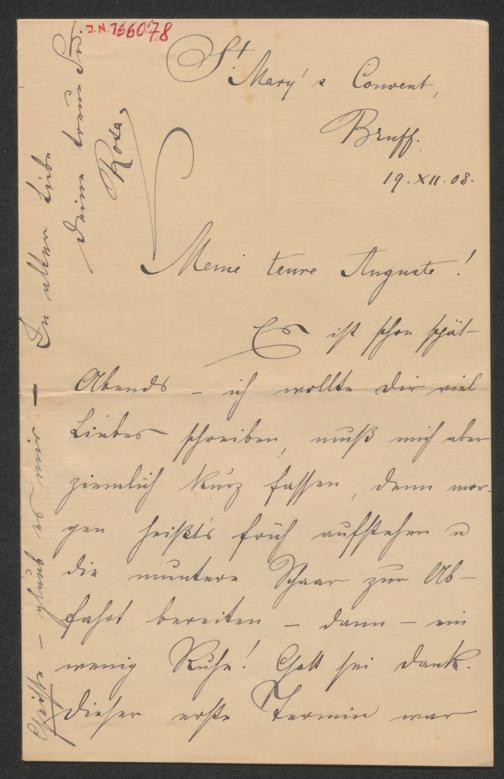 I.N. 166078
St Mary's Convent,
Bruff.
19. XII. 08.
Meine teure Auguste!
Es ist schon spät
Abends – ich wollte Dir viel
Liebes schreiben, muß mich aber
ziemlich kurz fassen, denn mor-
gen heißt's früh aufstehen u
die muntere Schaar zur Ab-
fahrt bereiten – dann – ein
wenig Ruhe! Gott sei Dank.
Dieser erste Termin war
– glaub es mir – In alter Liebe
Deine treue
Rosa